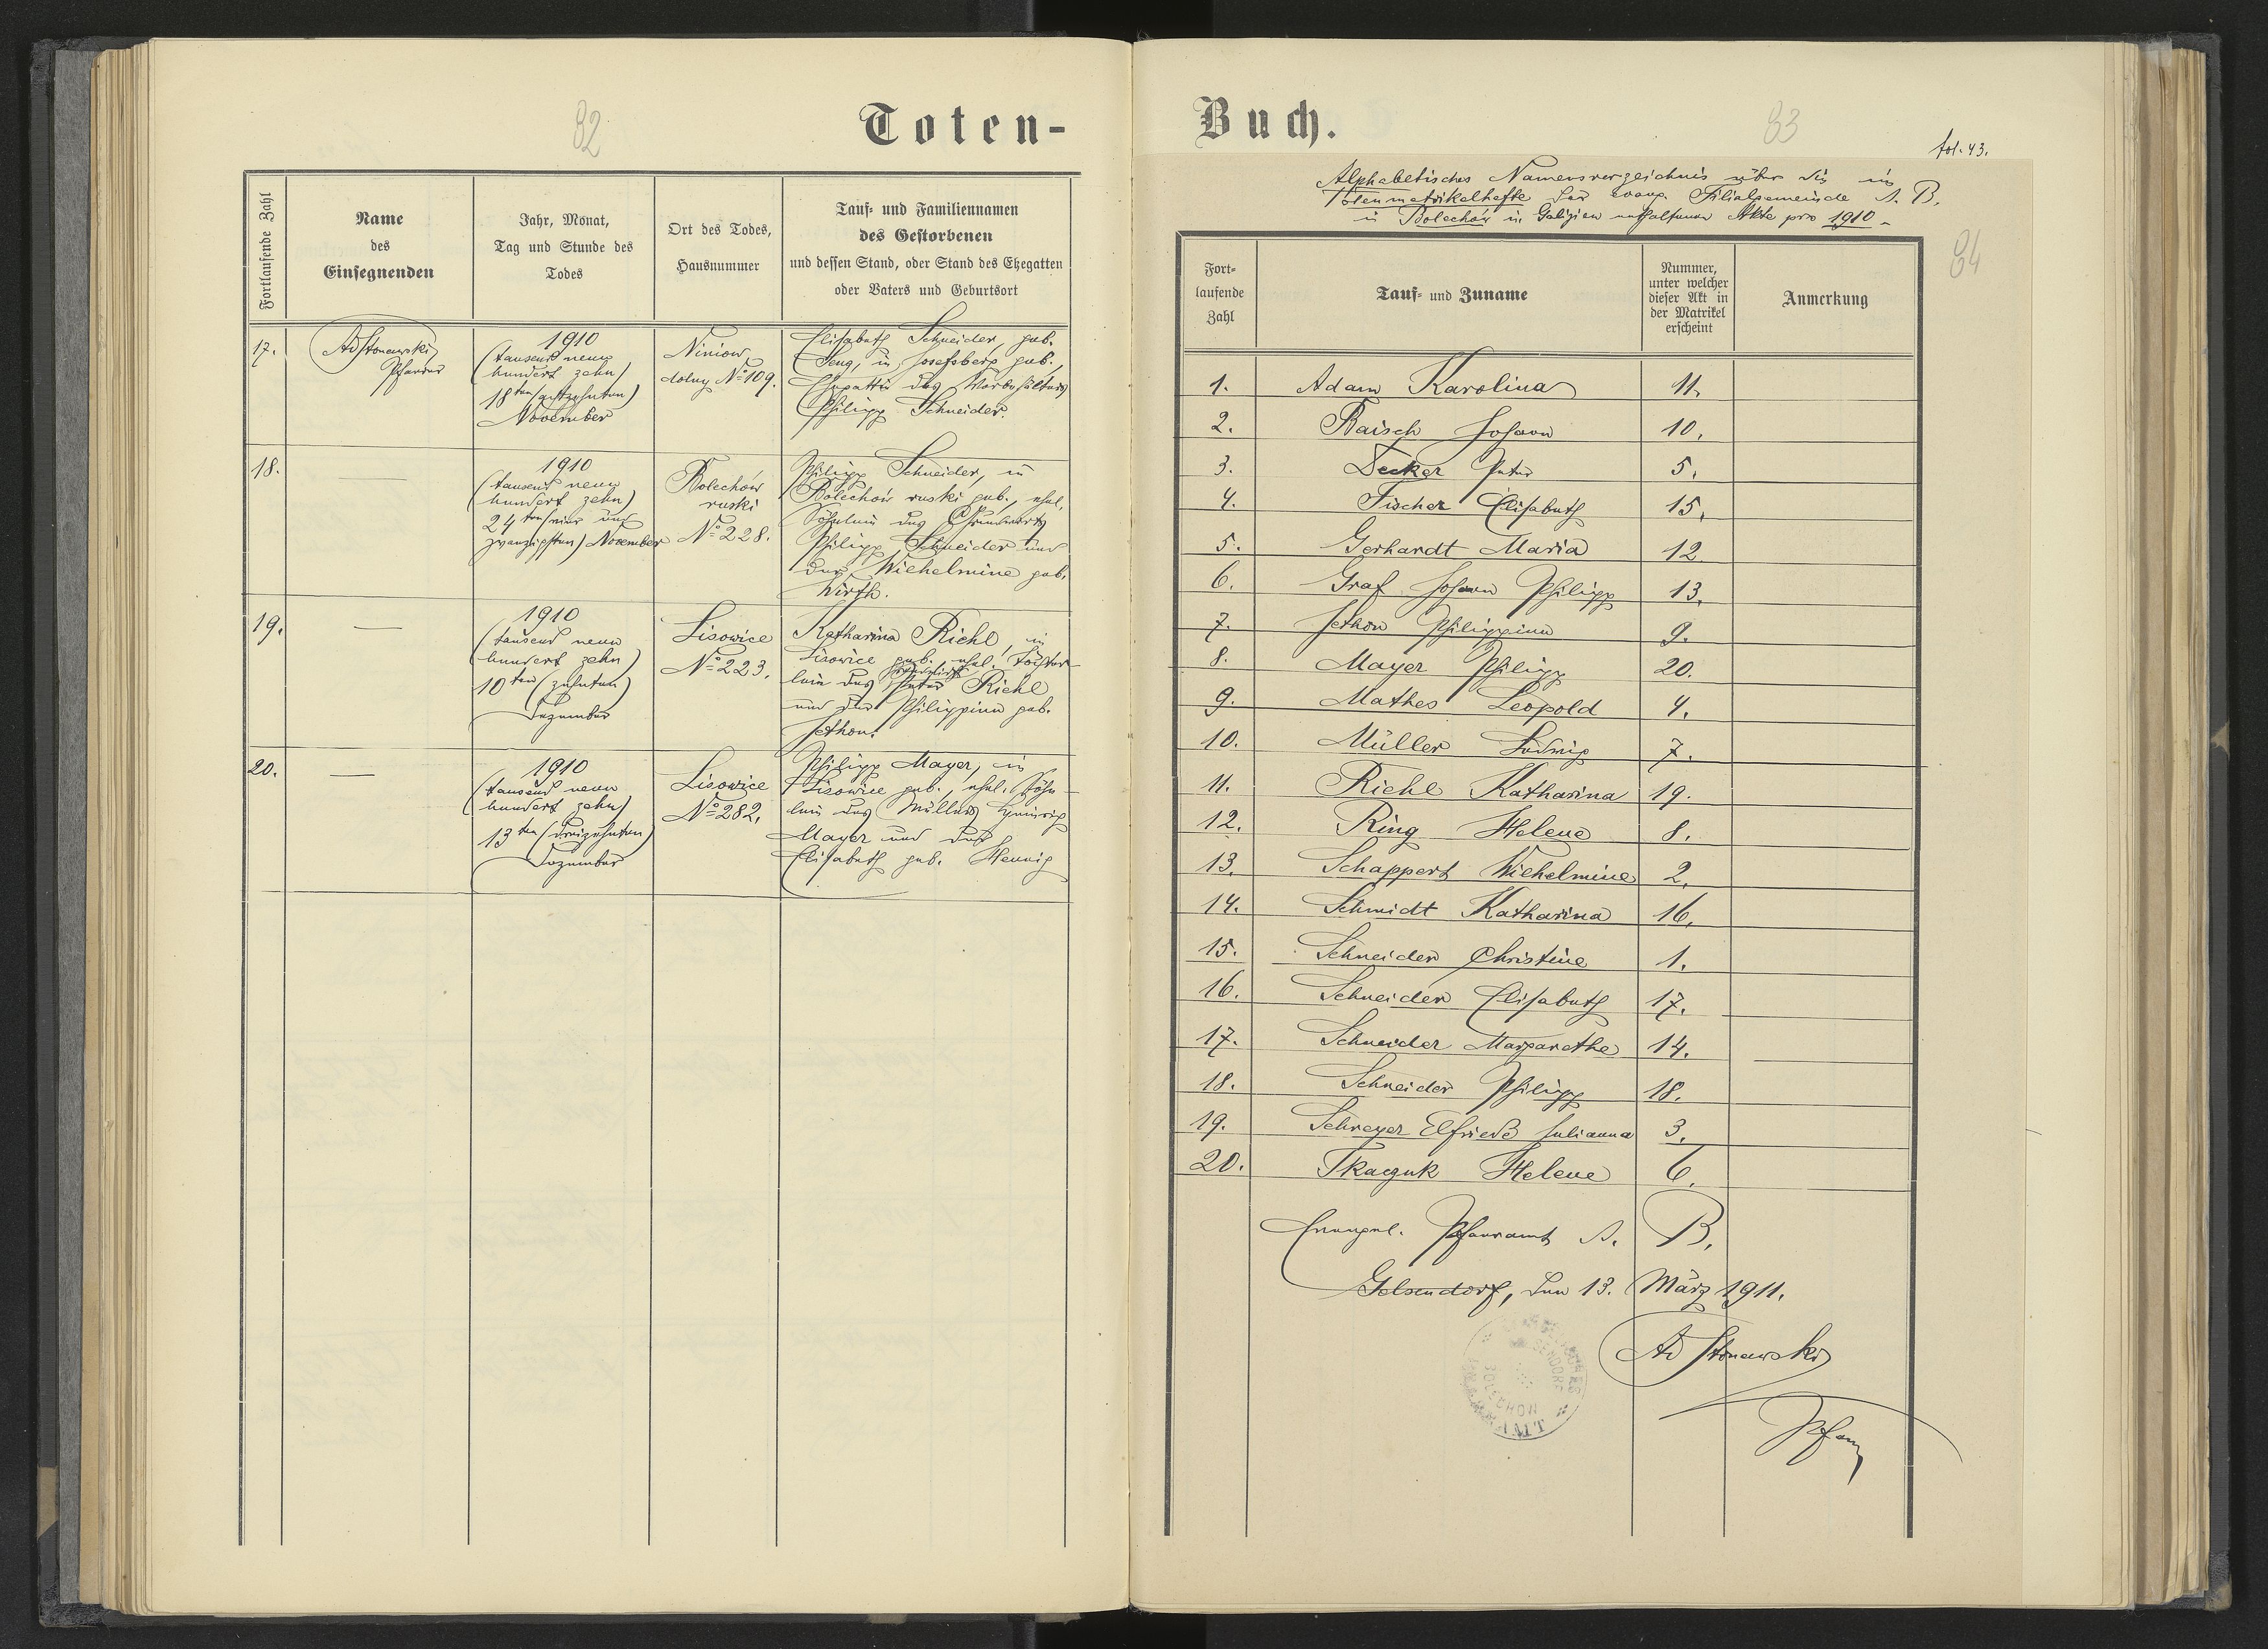 82
Toten-
Fortlaufende Zahl
Name
des
Einsegnenden
Jahr, Monat,
Tag und Stunde des
Todes
Ort des Todes,
Hausnummer
Tauf- und Familiennamen
des Gestorbenen
und dessen Stand, oder Stand des Ehegatten
oder Vaters und Geburtsort
17.
Ad Stonawski
Pfarrer
1910
(tausend neun
hundert zehn)
18ten (achtzehnten)
November
Niniow
dolny No 109.
Elisabeth Schneider, geb.
Seng, in Josefsberg geb.,
Ehegattin des
Philipp Schneider.
18.
—
1910
(tausend neun
hundert zehn)
24ten (vier und
zwanzigsten) November
Bolechów
ruski
No 228.
Philipp Schneider, in
Bolechów ruski geb., ehel.
Söhnlein des Grundwirts
Philipp Schneider und
der Wilhelmine geb.
Wirth.
19.
—
1910
(tausend neun
hundert zehn)
10ten (zehnten)
Dezember
Lisowice
No 223.
Katharina Riehl, in
Lisowice geb. ehel. Töchter-
lein des Peter Riehl
und der Philippine geb.
Jethon.
20.
—
1910
(tausend neun
hundert zehn)
13ten (dreizehnten)
Dezember
Lisowice
No 282.
Philipp Mayer, in
Lisowice geb., ehel. Söhn-
lein des Müllers Heinrich
Mayer und der
Elisabeth geb. Hennig
Buch.
83
fol. 43.
84
Alphabetisches Namensverzeichnis über die im
Totenmatrikelhefte der evang. Filialgemeinde A. B.
in Bolechów in Galizien enthaltenen Akte pro 1910.-
Fort-
laufende
Zahl
Tauf- und Zuname
Nummer,
unter welcher
dieser Akt in
der Matrikel
erscheint
Anmerkung
1. Adam Karolina 11.
2. Baisch Johann 10.
3. Decker Peter 5.
4. Fischer Elisabeth 15.
5. Gerhardt Maria 12.
6. Graf Johann Philipp 13.
7. Jethon Philippine 9.
8. Mayer Philipp 20.
9. Mathes Leopold 4.
10. Müller Ludwig 7.
11. Riehl Katharina 19.
12. Ring Helene 8.
13. Schappert Wilhelmine 2.
14. Schmidt Katharina 16.
15. Schneider Christine 1.
16. Schneider Elisabeth 17.
17. Schneider Margarethe 14.
18. Schneider Philipp 18.
19. Schreyer Elfriede Julianna 3.
20. Tkaczuk Helene 6.
Evangel. Pfarramt A. B.
Gelsendorf, den 13. März 1911.
Ad Stonawski
Pfarrer
BOLECHOW